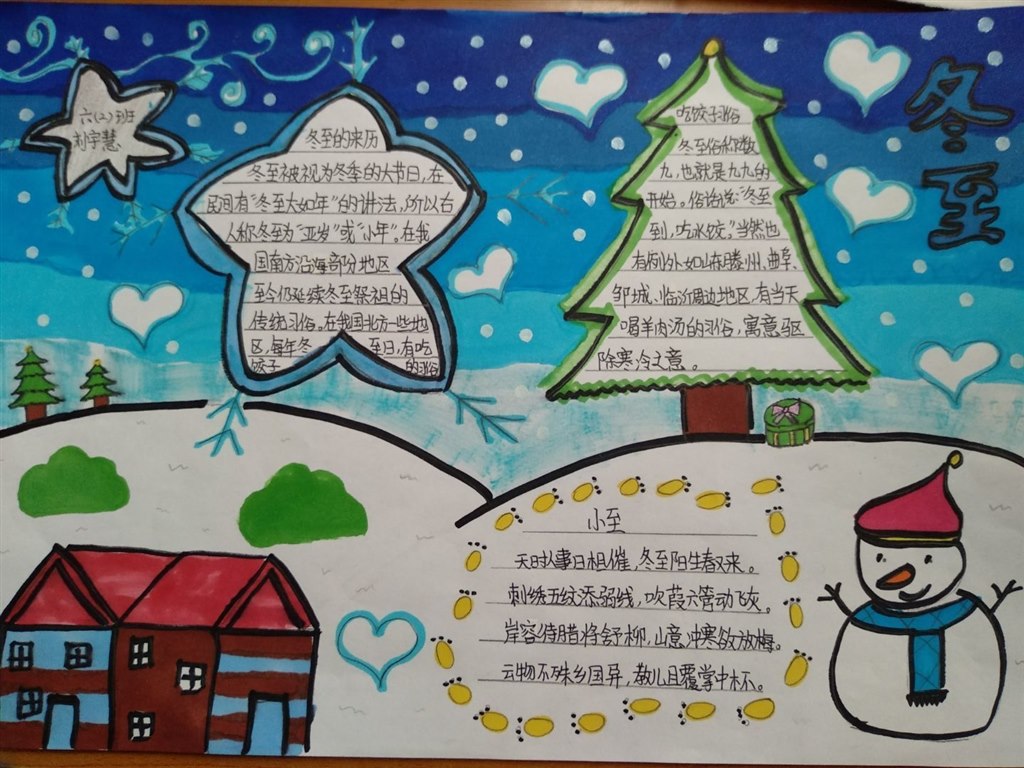 六(2)班
刘宇慧
冬至的来历
冬至被视为冬季的大节日，在
民间有“冬至大如年”的讲法，所以古
人称冬至为“亚岁”或“小年”。在我
国南方沿海部分地区
至今仍延续冬至祭祖的
传统习俗。在我国北方一些地
区，每年冬至日，有吃
饺子的习俗
吃饺子习俗
冬至俗称数
九，也就是九九的
开始。俗话说：“冬至
到，吃水饺。”当然也
有例外如山东滕州、曲阜、
邹城、临沂周边地区，有当天
喝羊肉汤的习俗，寓意驱
除寒冷之意。
冬至
小至
天时人事日相催，冬至阳生春又来。
刺绣五纹添弱线，吹葭六管动飞灰。
岸容待腊将舒柳，山意冲寒欲放梅。
云物不殊乡国异，教儿且覆掌中杯。